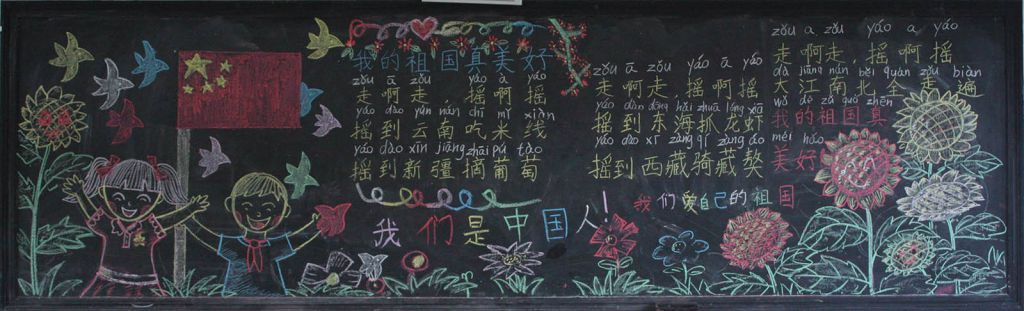 我的祖国真美好
zǒu ā zǒu yáo à yáo
走啊走，摇啊摇
yáo dào yún nán chī mǐ xiàn
摇到云南吃米线
yáo dào xīn jiāng zhāi pú táo
摇到新疆摘葡萄
zǒu ā zǒu yáo ā yáo
走啊走，摇啊摇
yáo dào dōng hǎi zhuā lóng xiā
摇到东海抓龙虾
yáo dào xī zàng qí zàng áo
摇到西藏骑藏獒
zǒu a zǒu yáo a yáo
走啊走，摇啊摇
dà jiāng nán běi quán zǒu biàn
大江南北全走遍
wǒ de zǔ guó zhēn
我的祖国真
měi hǎo
美好
我们是中国人！
我们爱自己的祖国